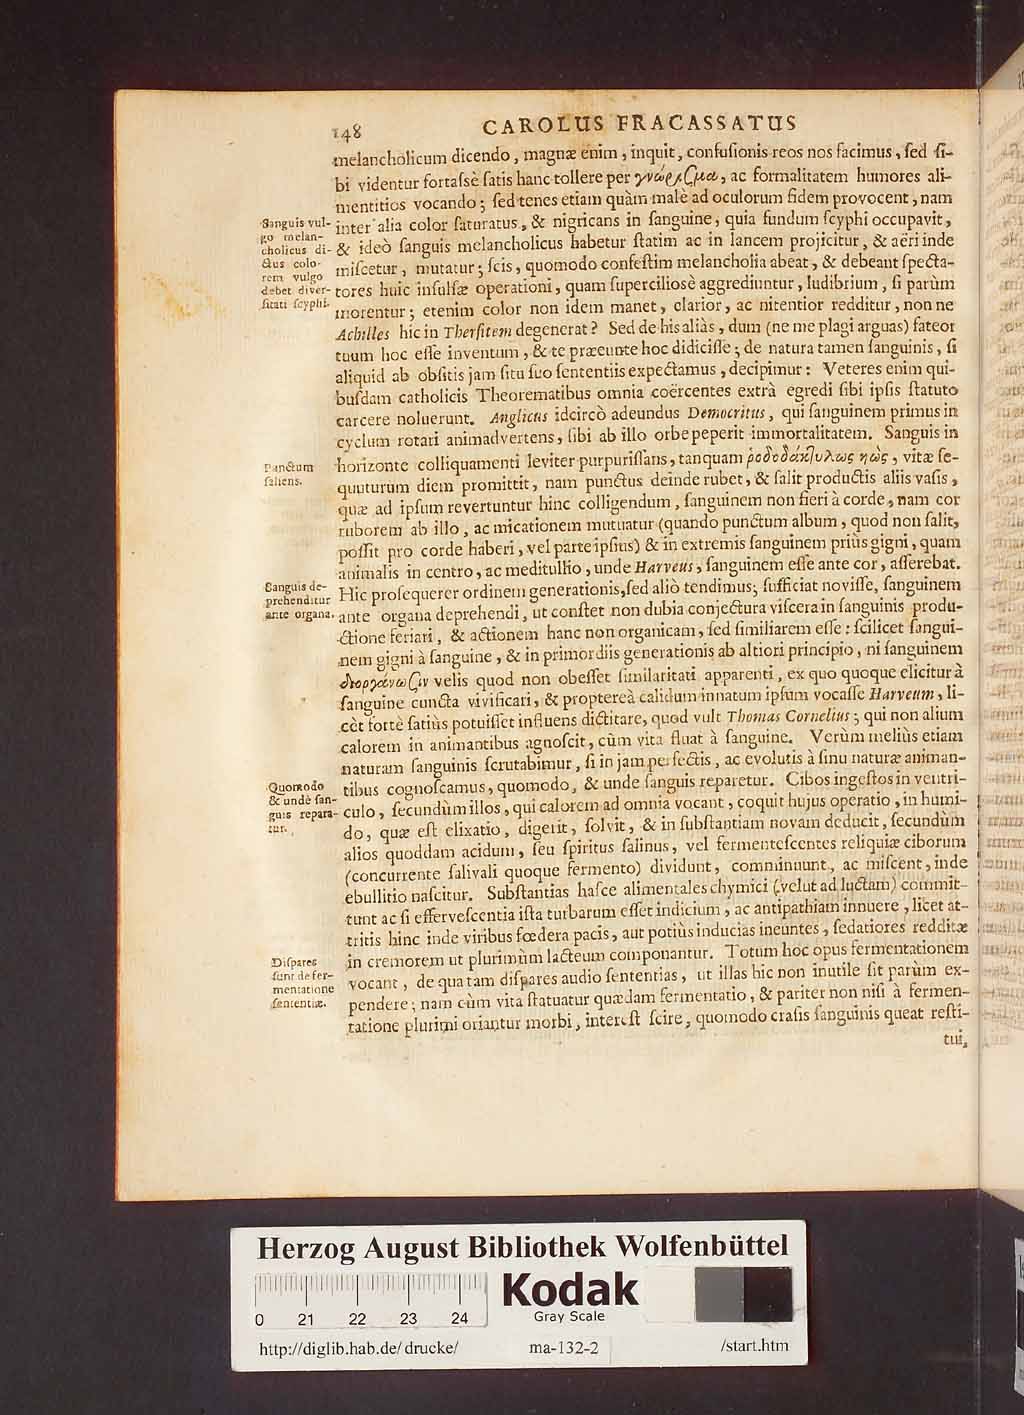 148
CAROLUS FRACASSATUS
melancholicum dicendo, magnæ enim, inquit, confusionis reos nos facimus, sed si-
bi videntur fortassè satis hanc tollere per γνώριζμα, ac formalitatem humores ali-
mentitios vocando; sed tenes etiam quàm malè ad oculorum fidem provocent, nam
inter alia color saturatus, & nigricans in sanguine, quia fundum scyphi occupavit,
& ideò sanguis melancholicus habetur statim ac in lancem projicitur, & aëri inde
miscetur, mutatur; scis, quomodo confestim melancholia abeat, & debeant specta-
tores huic insulsæ operationi, quam superciliosè aggrediuntur, ludibrium, si parùm
morentur; etenim color non idem manet, clarior, ac nitentior redditur, non ne
Achilles hic in Thersitem degenerat? Sed de his aliàs, dum (ne me plagi arguas) fateor
tuum hoc esse inventum, & te præeunte hoc didicisse; de natura tamen sanguinis, si
aliquid ab obsitis jam situ suo sententiis expectamus, decipimur: Veteres enim qui-
busdam catholicis Theorematibus omnia coërcentes extrà egredi sibi ipsis statuto
carcere noluerunt. Anglicus idcircò adeundus Democritus, qui sanguinem primus in
cyclum rotari animadvertens, sibi ab illo orbe peperit immortalitatem. Sanguis in
horizonte colliquamenti leviter purpurissans, tanquam ῥοδοδάκτυλως ηὼς, vitæ se-
quuturum diem promittit, nam punctus deinde rubet, & salit productis aliis vasis,
quæ ad ipsum revertuntur hinc colligendum, sanguinem non fieri à corde, nam cor
ruborem ab illo, ac micationem mutuatur (quando punctum album, quod non salit,
possit pro corde haberi, vel parte ipsius) & in extremis sanguinem priùs gigni, quam
animalis in centro, ac meditullio, unde Harveus, sanguinem esse ante cor, asserebat.
Hic prosequerer ordinem generationis, sed aliò tendimus; sufficiat novisse, sanguinem
ante organa deprehendi, ut constet non dubia conjectura viscera in sanguinis produ-
ctione feriari, & actionem hanc non organicam, sed similiarem esse: scilicet sangui-
nem gigni à sanguine, & in primordiis generationis ab altiori principio, ni sanguinem
διοργάνωζιν velis quod non obesset similaritati apparenti, ex quo quoque elicitur à
sanguine cuncta vivificari, & proptereà calidum innatum ipsum vocasse Harveum, li-
cèt fortè satiùs potuisset influens dictitare, quod vult Thomas Cornelius; qui non alium
calorem in animantibus agnoscit, cùm vita fluat à sanguine. Verùm meliùs etiam
naturam sanguinis scrutabimur, si in jam perfectis, ac evolutis à sinu naturæ animan-
tibus cognoscamus, quomodo, & unde sanguis reparetur. Cibos ingestos in ventri-
culo, secundùm illos, qui calorem ad omnia vocant, coquit hujus operatio, in humi-
do, quæ est elixatio, digerit, solvit, & in substantiam novam deducit, secundùm
alios quoddam acidum, seu spiritus salinus, vel fermentescentes reliquiæ ciborum
(concurrente salivali quoque fermento) dividunt, comminuunt, ac miscent, inde
ebullitio nascitur. Substantias hasce alimentales chymici (velut ad luctam) commit-
tunt ac si effervescentia ista turbarum esset indicium, ac antipathiam innuere, licet at-
tritis hinc inde viribus fœdera pacis, aut potiùs inducias ineuntes, sedatiores redditæ
in cremorem ut plurimùm lacteum componantur. Totum hoc opus fermentationem
vocant, de qua tam dispares audio sententias, ut illas hic non inutile sit parùm ex-
pendere; nam cùm vita statuatur quædam fermentatio, & pariter non nisi à fermen-
tatione plurimi oriantur morbi, interest scire, quomodo crasis sanguinis queat resti-
tui,
Sanguis vul-
go melan-
cholicus di-
ctus colo-
rem vulgo
debet diver-
sitati scyphi.
Punctum
saliens.
Sanguis de-
prehenditur
ante organa.
Quomodo
& unde san-
guis repara-
tur.
Dispares
sunt de fer-
mentatione
sententiæ.
Herzog August Bibliothek Wolfenbüttel
Kodak
Gray Scale
0 21 22 23 24
http://diglib.hab.de/drucke/ ma-132-2 /start.htm